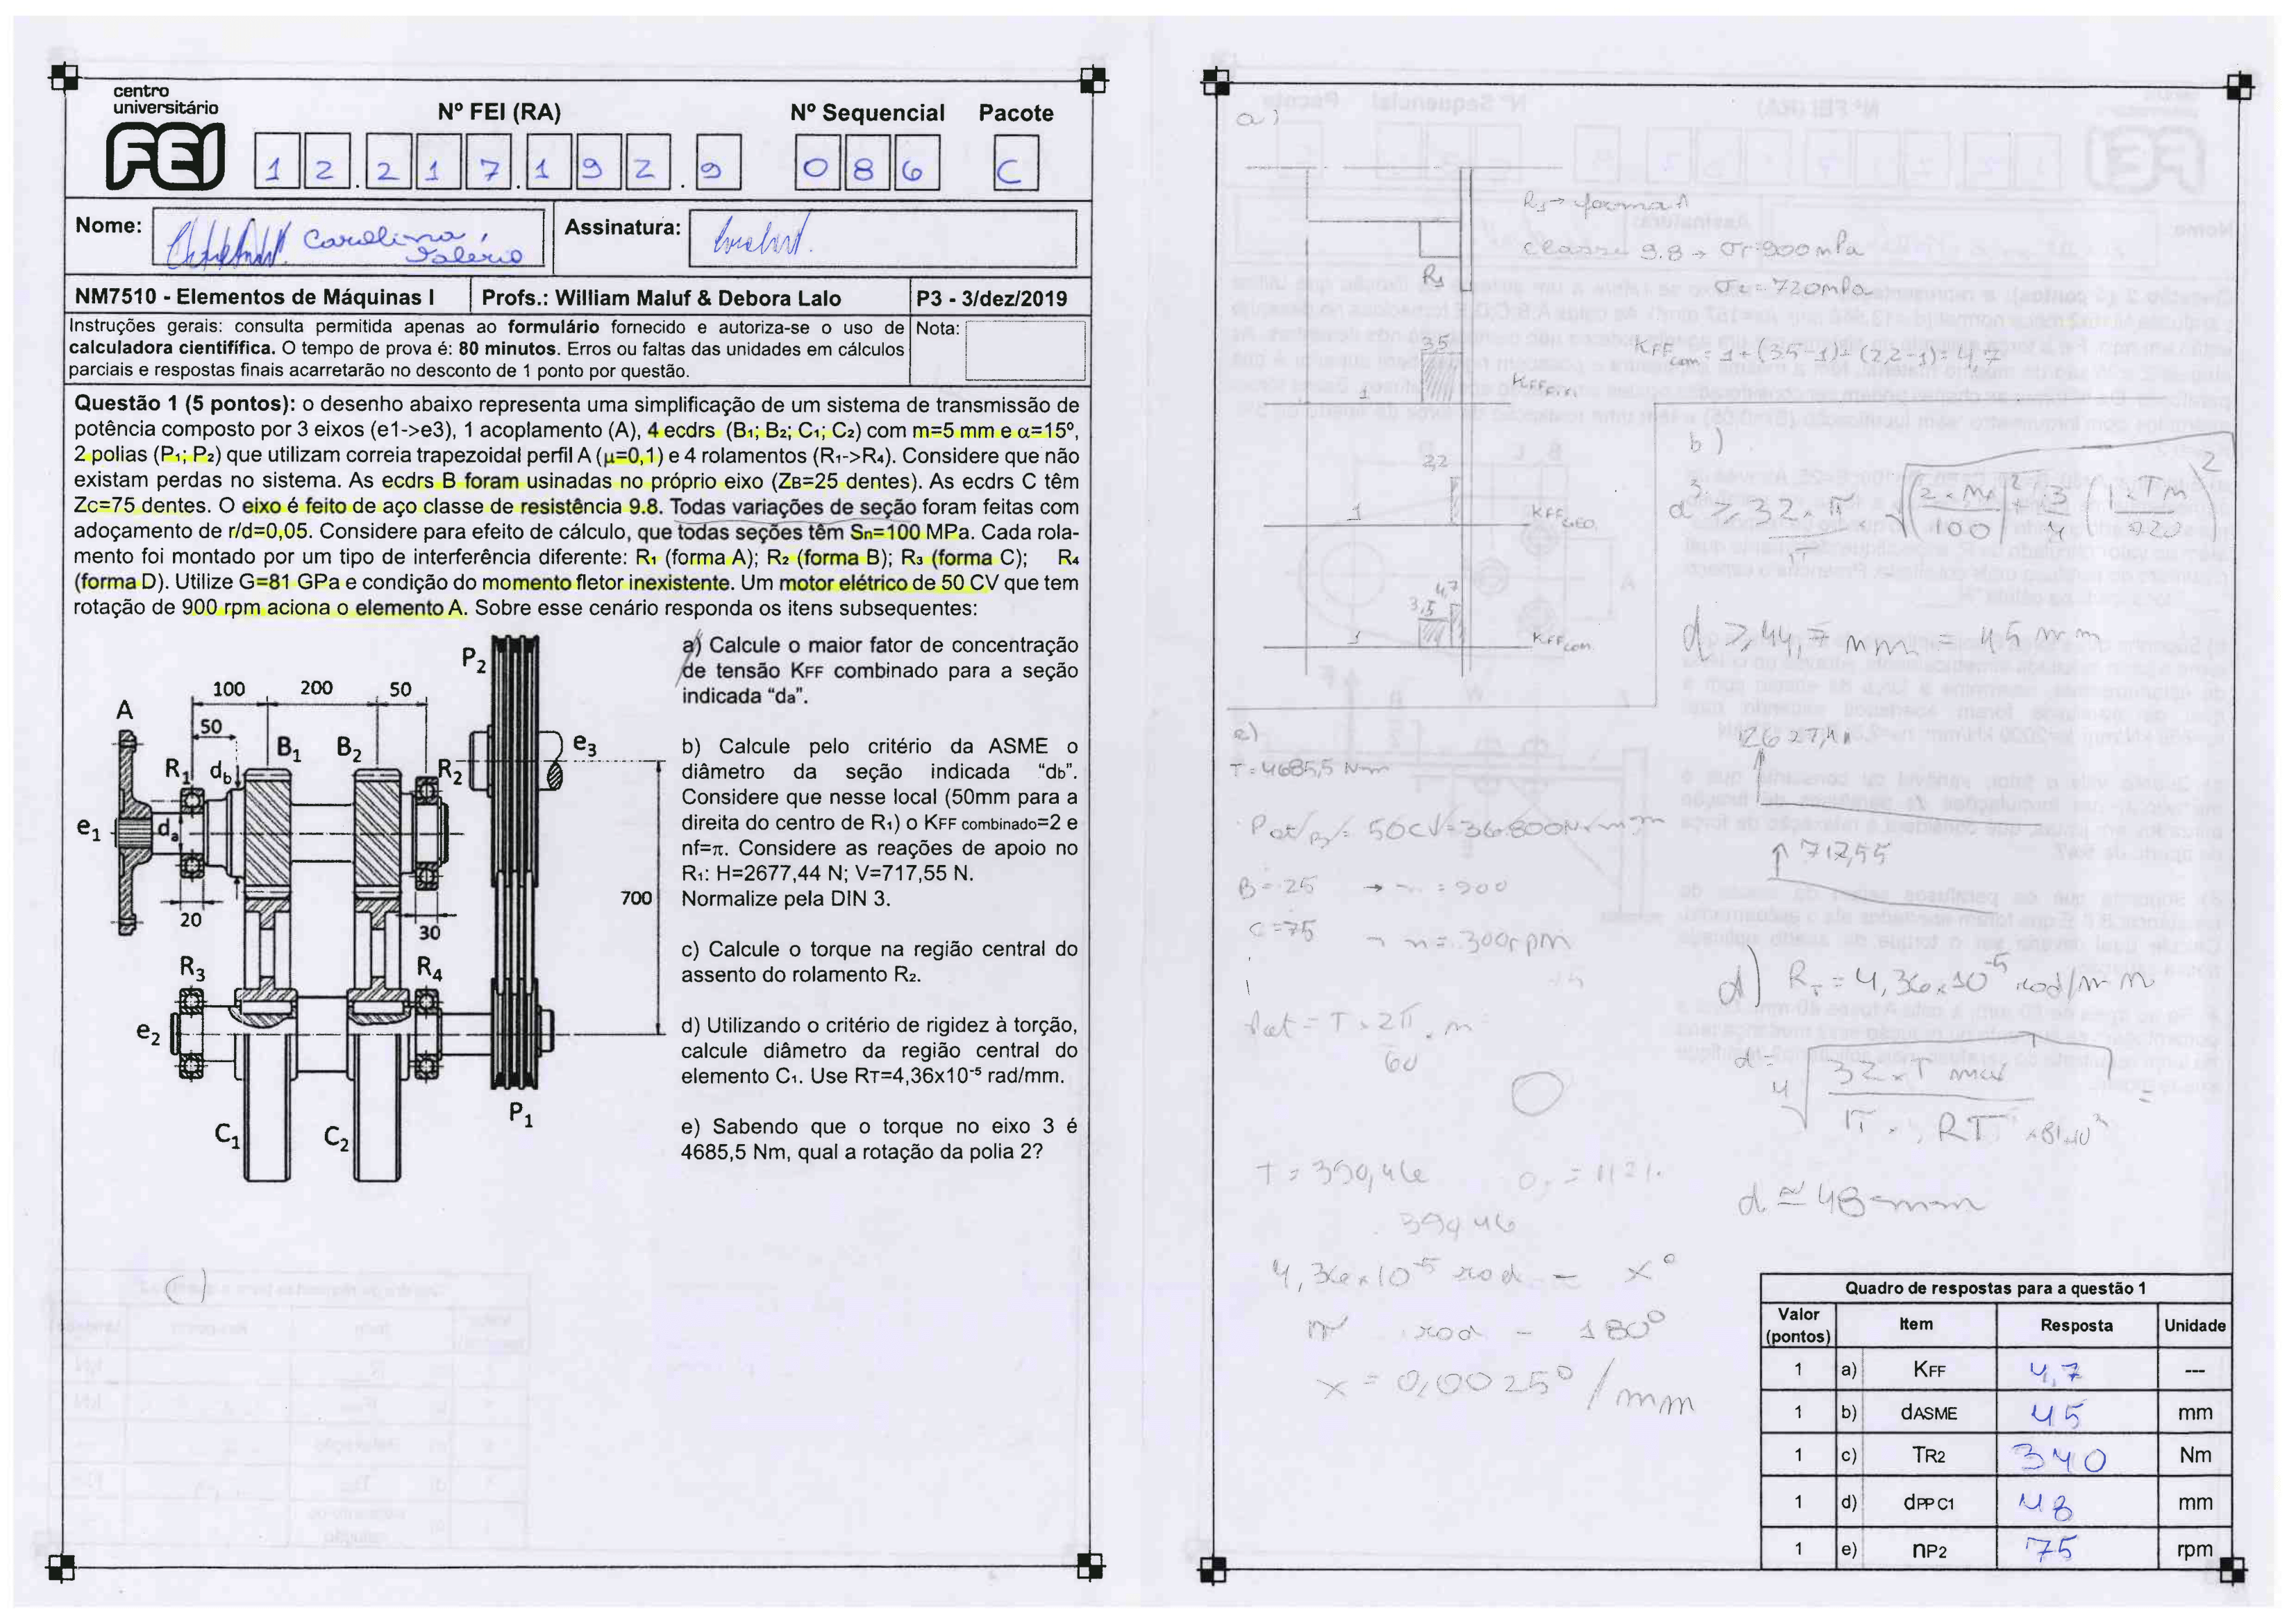 centro
universitário
FEI
Nº FEI (RA)
Nº Sequencial
Pacote
1 2 . 2 1 7 . 1 9 2 . 9
0 8 6
C
Nome:
Carolina
Valerio
Assinatura:
NM7510 - Elementos de Máquinas I
Profs.: William Maluf & Debora Lalo
P3 - 3/dez/2019
Instruções gerais: consulta permitida apenas ao formulário fornecido e autoriza-se o uso de
calculadora cientifífica. O tempo de prova é: 80 minutos. Erros ou faltas das unidades em cálculos
parciais e respostas finais acarretarão no desconto de 1 ponto por questão.
Nota:
Questão 1 (5 pontos): o desenho abaixo representa uma simplificação de um sistema de transmissão de
potência composto por 3 eixos (e1->e3), 1 acoplamento (A), 4 ecdrs (B1; B2; C1; C2) com m=5 mm e α=15º,
2 polias (P1; P2) que utilizam correia trapezoidal perfil A (µ=0,1) e 4 rolamentos (R1->R4). Considere que não
existam perdas no sistema. As ecdrs B foram usinadas no próprio eixo (ZB=25 dentes). As ecdrs C têm
Zc=75 dentes. O eixo é feito de aço classe de resistência 9.8. Todas variações de seção foram feitas com
adoçamento de r/d=0,05. Considere para efeito de cálculo, que todas seções têm Sn=100 MPa. Cada rola-
mento foi montado por um tipo de interferência diferente: R1 (forma A); R2 (forma B); R3 (forma C); R4
(forma D). Utilize G=81 GPa e condição do momento fletor inexistente. Um motor elétrico de 50 CV que tem
rotação de 900 rpm aciona o elemento A. Sobre esse cenário responda os itens subsequentes:
P2
100
200
50
A
50
B1
B2
e3
R1
db
R2
e1
da
20
30
700
R3
R4
e2
C1
C2
P1
a) Calcule o maior fator de concentração
de tensão KFF combinado para a seção
indicada “da”.
b) Calcule pelo critério da ASME o
diâmetro da seção indicada “db”.
Considere que nesse local (50mm para a
direita do centro de R1) o KFF combinado=2 e
nf=π. Considere as reações de apoio no
R1: H=2677,44 N; V=717,55 N.
Normalize pela DIN 3.
c) Calcule o torque na região central do
assento do rolamento R2.
d) Utilizando o critério de rigidez à torção,
calcule diâmetro da região central do
elemento C1. Use RT=4,36x10⁻⁵ rad/mm.
e) Sabendo que o torque no eixo 3 é
4685,5 Nm, qual a rotação da polia 2?
c)
a)
R1 → forma A
classe 9.8 → σr=900mPa
σe=720mPa
R1
3,5
1
KFF
KFFcom = 1+(3,5-1)+(2,2-1)=4,7
2,2
1
KFFGEO.
4,7
3,5
1
KFFcom
b)
d³ ≥ 32×π
π
√(2×Mf/100)² + 3/4 (1×Tm/720)²
d ≥ 44,7 mm = 45 mm
717,55
e)
T=4685,5 Nm
50CV=36.800N
B=25 → n=900
C=75 → n=300rpm
Pot = T×2π.n
60
T=390,46
390,46
4,36×10⁻⁵ rad – x°
π rad – 180°
x = 0,0025° / mm
d) RT = 4,36×10⁻⁵ rad/mm
d= ⁴√ 32×T max =
π . RT ×81×10³
d ≅ 48mm
Quadro de respostas para a questão 1
Valor (pontos) Item Resposta Unidade
1 a) KFF 4,7 ---
1 b) dASME 45 mm
1 c) TR2 340 Nm
1 d) dPP C1 48 mm
1 e) nP2 75 rpm